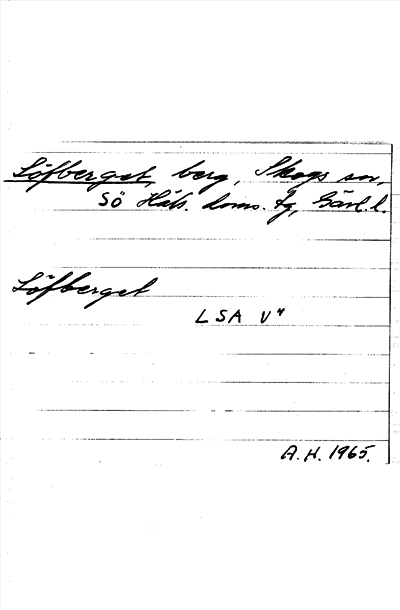 Löfberget, berg, Skogs sn,
SÖ Häls. doms. tg, Gävl. l.
Löfberget
LSA V"
A. H. 1965.